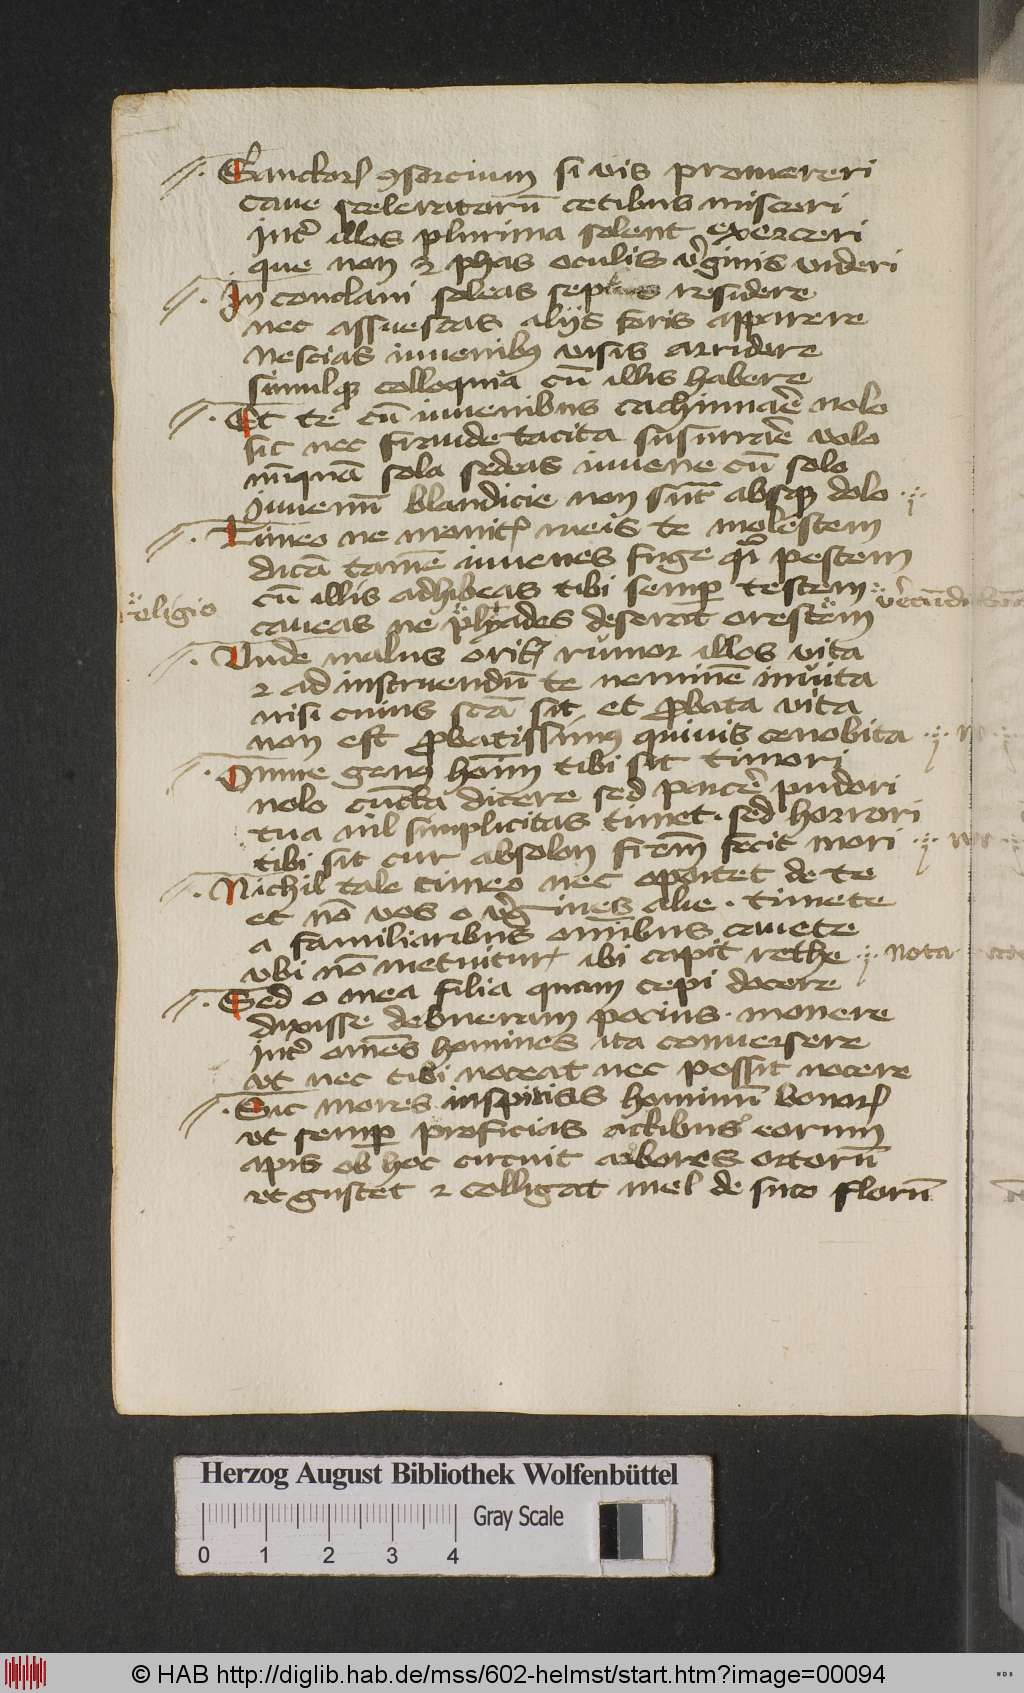 Sanctorꝝ ꝯsorcium si vis promereri
caue sceleratorū cetibus misceri
Int͛ illos plurima solent exerceri
que non ⁊ phas oculis v͛ginis videri
In conclaui soleas sepius residere
nec assuescas aliis foris apparere
Nescias iuuenibꝰ visis arridere
simulqꝫ colloquia cū illis habere
Et te cū iuuenibus cachinnar̄e nolo
sic nec fraude tacita susurrar̄e volo
nūquā sola sedeas iuuene cū solo
Iuuenū blandicie non sūt absqꝫ dolo
Timeo ne monitꝭ meis te molestem
dicā tamē iuuenes fuge qͣi pestem
cū illis adhibeas tibi semꝑ testem
religio
caueas ne plyades deserāt orestem
Unde malus oritꝛ rumor illos vita
⁊ ad instruendū te neminē inuita
nisi cuius sc̄a sit et ꝓbata vita
non est ꝓbatissimꝰ quiuis cenobita
Omne genꝰ hoīm tibi sit timori
nolo cūcta dicere sed parcē pudori
tua nil simplicitas timet · sed horrori
tibi sit cur absolon fr̄em fecit mori
Nichil tale timeo nec oportet de te
et nō vos o v͛gines alie · timete
a familiaribus omībus cauete
vbi nō metuitur ibi capit rethe nota
Sed o mea filia quam cepi docere
dixisse debueram pocius · monere
Int͛ omēs homines ita conuersere
vt nec tibi noceat nec possit nocere
Sic mores inspicias hominū bonorꝝ
vt semꝑ proficias actibus eorum
apis ob hoc circuit arbores ortorū
vt gustet ⁊ colligat mel de suco florū
Herzog August Bibliothek Wolfenbüttel
Gray Scale
0 1 2 3 4
© HAB http://diglib.hab.de/mss/602-helmst/start.htm?image=00094